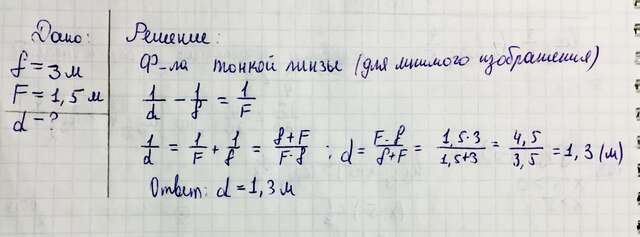 Дано:
f = 3 м
F = 1,5 м
d - ?
Решение:
Ф-ла тонкой линзы (для мнимого изображения)
1/d - 1/f = 1/F
1/d = 1/F + 1/f = (f+F)/(F·f) ; d = (F·f)/(f+F) = (1,5·3)/(1,5+3) = 4,5/3,5 = 1,3 (м)
Ответ: d = 1,3 м